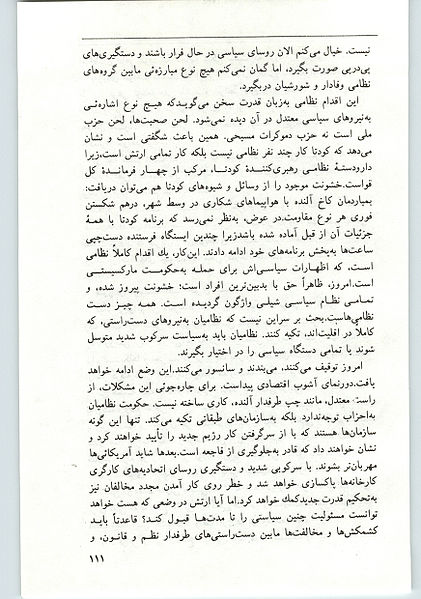 نیست. خیال می‌کنم الان روسای سیاسی در حال فرار باشند و دستگیری‌های
پی‌درپی صورت بگیرد، اما گمان نمی‌کنم هیچ نوع مبارزه‌ئی مابین گروه‌های
نظامی وفادار و شورشیان دربگیرد.
این اقدام نظامی به‌زبان قدرت سخن می‌گوید‌که هیچ نوع اشاره‌ئی
به‌نیروهای سیاسی معتدل در آن دیده نمی‌شود. لحن صحبت‌ها، لحن حزب
ملی است نه حزب دموکرات مسیحی. همین باعث شگفتی است و نشان
می‌دهد که کودتا کار چند نفر نظامی نیست بلکه کار تمامی ارتش است،زیرا
دارودستهٔ نظامی رهبری‌کنندهٔ کودتا، مرکب از چهار فرماندهٔ کل
قواست.خشونت موجود را از وسائل و شیوه‌های کودتا هم می‌توان دریافت:
بمباردمان کاخ آلنده با هواپیماهای شکاری در وسط شهر، درهم شکستن
فوری هر نوع مقاومت.در عوض، به‌نظر نمی‌رسد که برنامه کودتا با همهٔ
جزئیات آن از قبل آماده شده باشدزیرا چندین ایستگاه فرستنده دست‌چپی
ساعت‌ها به‌پخش برنامه‌های خود ادامه دادند. این‌کار، یك اقدام کاملاً نظامی
است، که اظهارات سیاسی‌اش برای حمله به‌حکومت مارکسیستی
است.امروز، ظاهراً حق با بدبین‌ترین افراد است؛ خشونت پیروز شده، و
تمامی نظام سیاسی شیلی واژگون گردیده است. همه چیز دست
نظامی‌هاست.بحث بر سراین نیست که نظامیان به‌نیروهای دست‌راستی، که
کاملاً در اقلیت‌اند، تکیه کنند. نظامیان باید به‌سیاست سرکوب شدید متوسل
شوند یا تمامی دستگاه سیاسی را در اختیار بگیرند.
امروز توقیف می‌کنند، می‌بندند و سانسور می‌کنند.این وضع ادامه خواهد
یافت.دورنمای آشوب اقتصادی پیداست. برای چاره‌جوئی این مشکلات، از
راست معتدل، مانند چپ طرفدار آلنده، کاری ساخته نیست. حکومت نظامیان
به‌احزاب توجه‌ندارد بلکه به‌سازمان‌های طبقاتی تکیه می‌کند. تنها این گونه
سازمان‌ها هستند که با از سرگرفتن کار رژیم جدید را تأیید خواهند کرد و
نشان خواهند داد که قادر به‌جلوگیری از فاجعه است.بعدها شاید آمریکائی‌ها
مهربان‌تر بشوند. با سرکوبی شدید و دستگیری روسای اتحادیه‌های کارگری
کارخانه‌ها پاکسازی خواهد شد و خطر روی کار آمدن مجدد مخالفان نیز
به‌تحکیم قدرت جدیدکمك خواهد کرد.اما آیا ارتش در وضعی که هست خواهد
توانست مسئولیت چنین سیاستی را تا مدت‌ها قبول کند؟ قاعدتاً باید
کشمکش‌ها و مخالفت‌ها مابین دست‌راستی‌های طرفدار نظم و قانون، و
۱۱۱